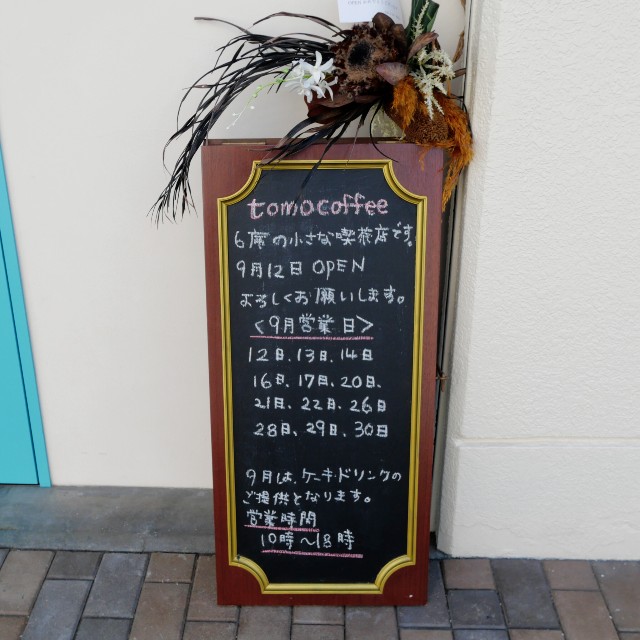 tomocoffee
6席の小さな喫茶店です。
9月12日 OPEN
よろしくお願いします。
<9月営業日>
12日、13日、14日
16日、17日、20日、
21日、22日、26日
28日、29日、30日
9月は、ケーキドリンクの
ご提供となります。
営業時間
10時〜18時